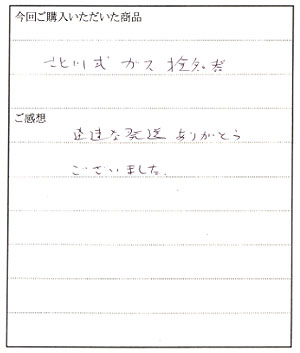 今回ご購入いただいた商品
さとり川式 ガス検知器
ご感想
迅速な発送 ありがとう
ございました。